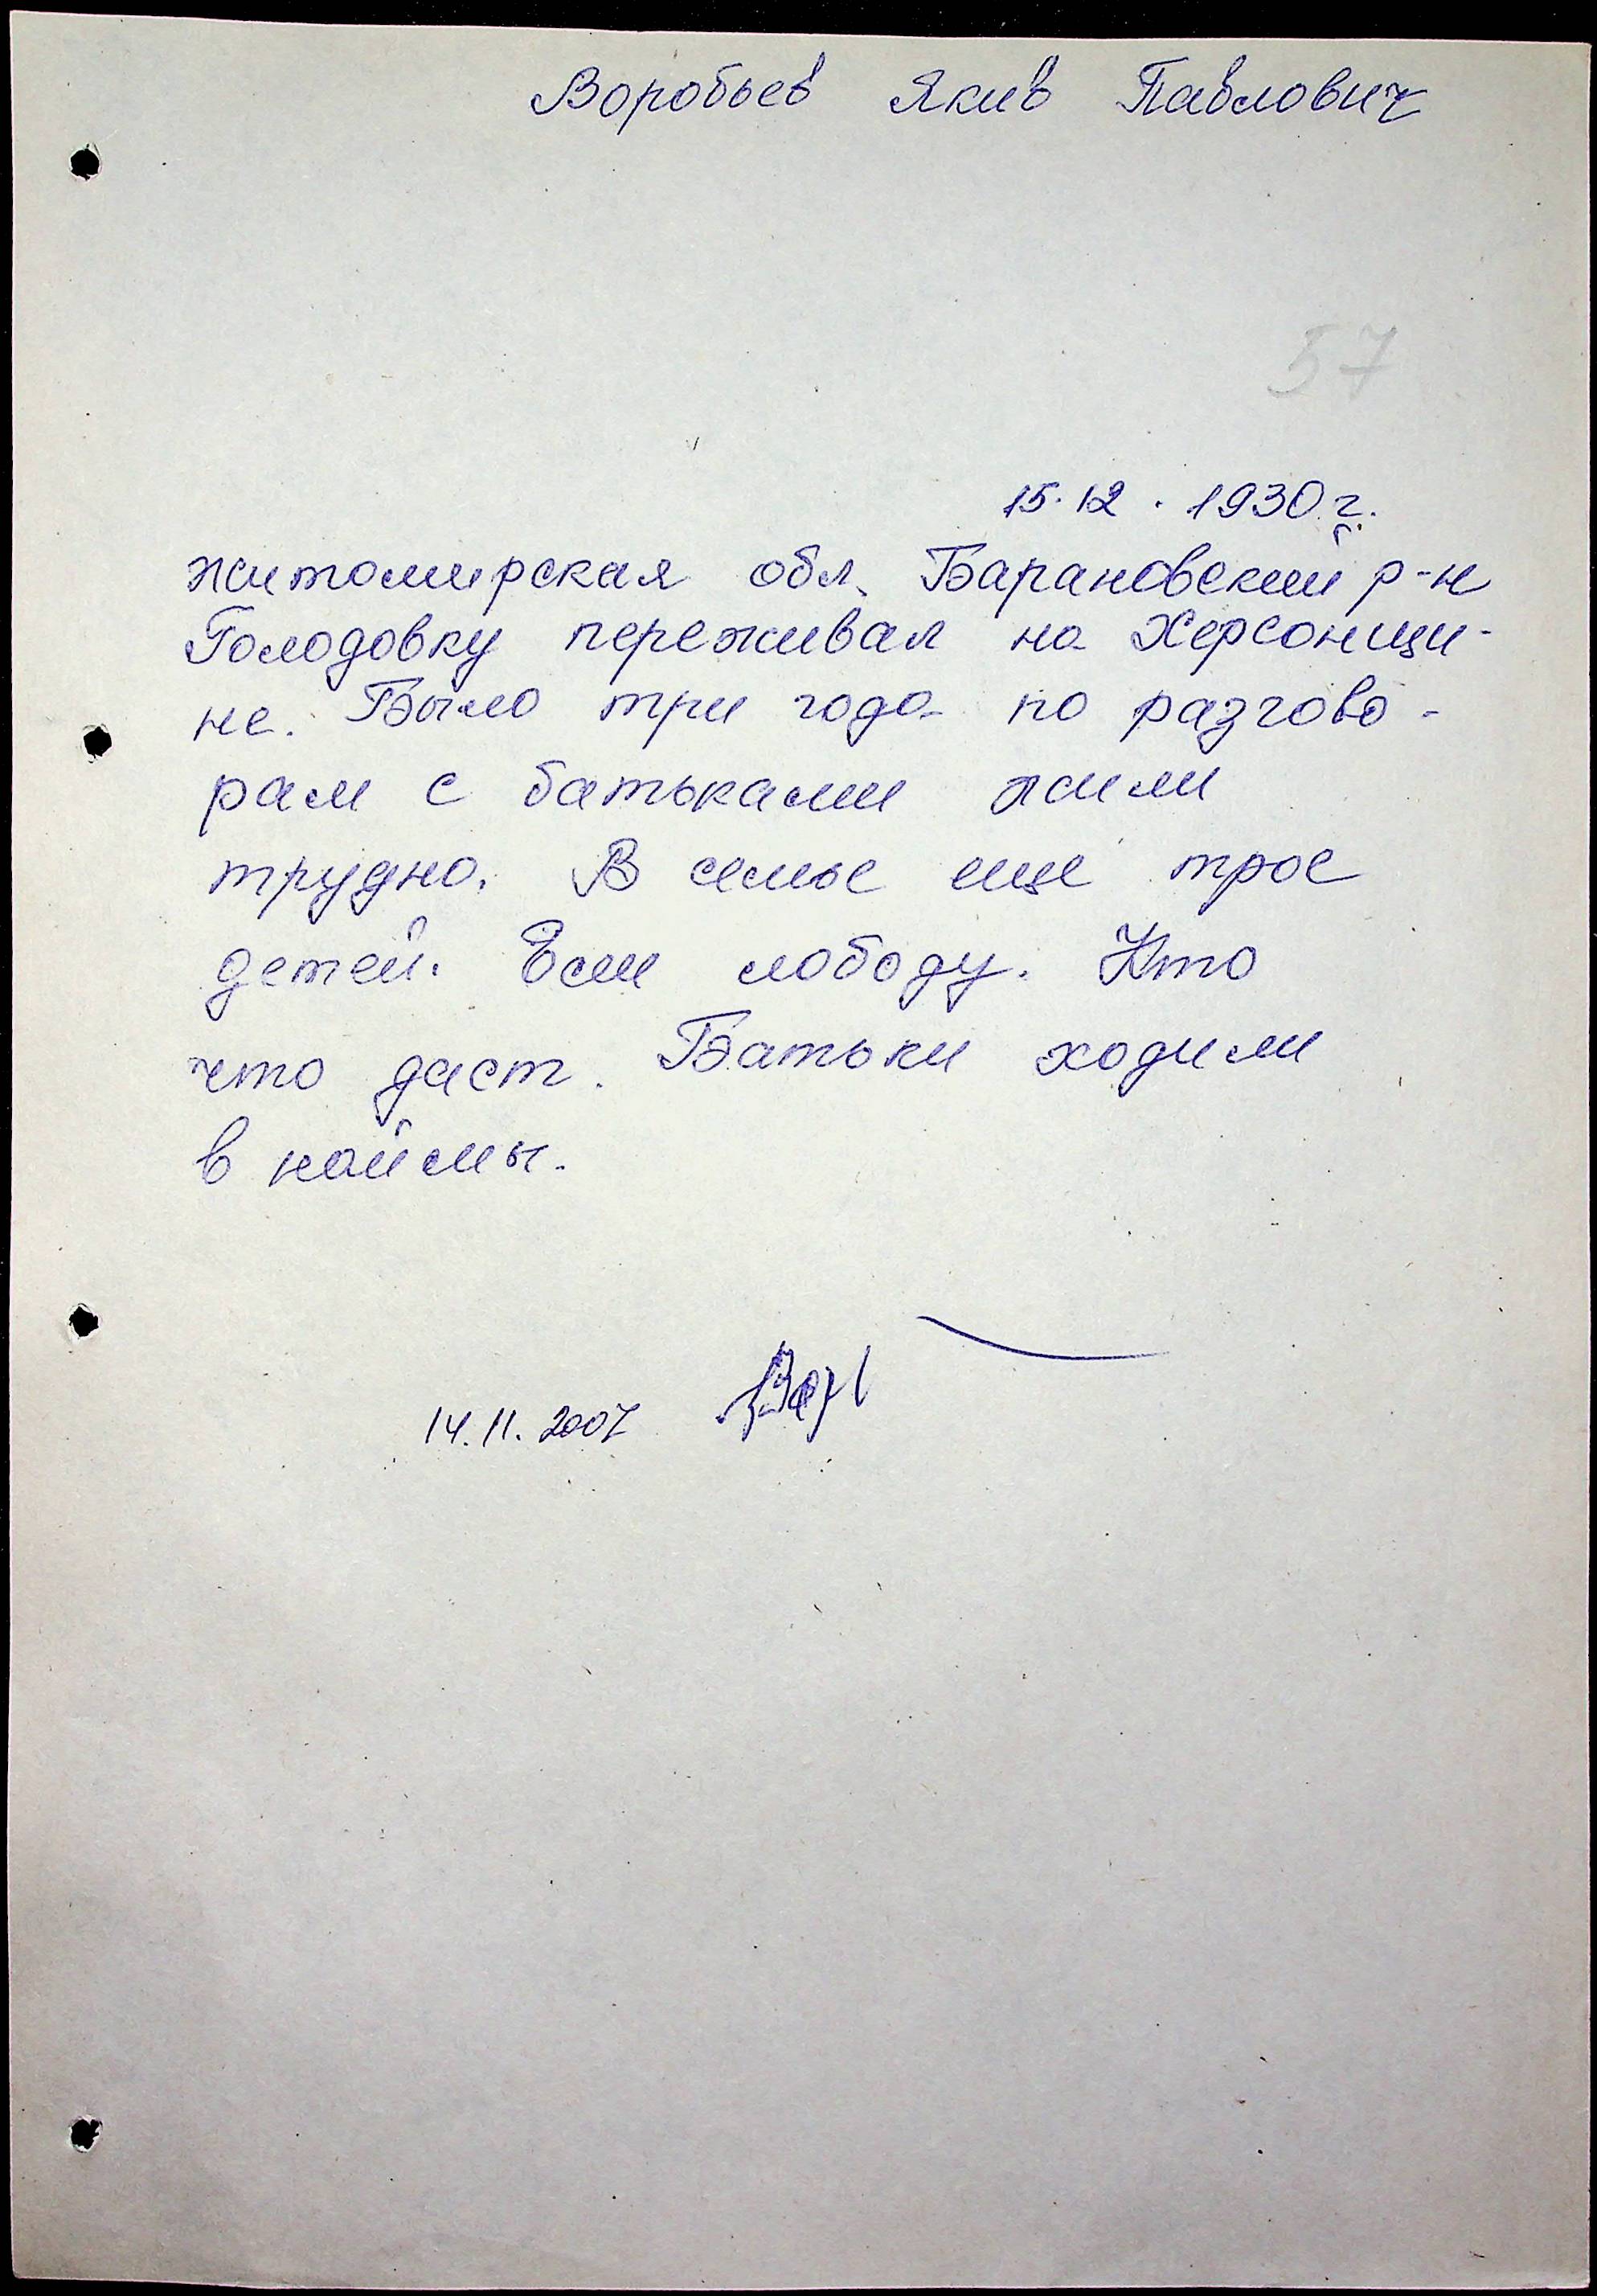 Воробьев Якив Павлович
57
15.12.1930 г.
житомирская обл. Барановский р-н
Голодовку переживал на Херсонщи-
не. Было три года по разгово-
рам с батьками жили
трудно. В семье еще трое
детей. Ели лободу. Кто
что даст. Батьки ходили
в наймы.
14.11.2007